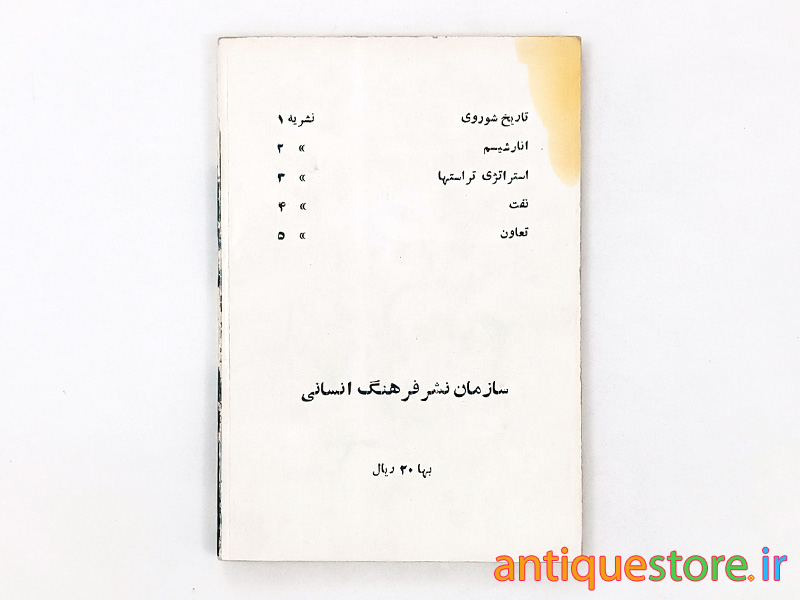 تاریخ شوروی نشریه ۱
انارشیسم » ۲
استراتژی تراستها » ۳
نفت » ۴
تعاون » ۵
سازمان نشر فرهنگ انسانی
بها ۲۰ ریال
antiquestore.ir